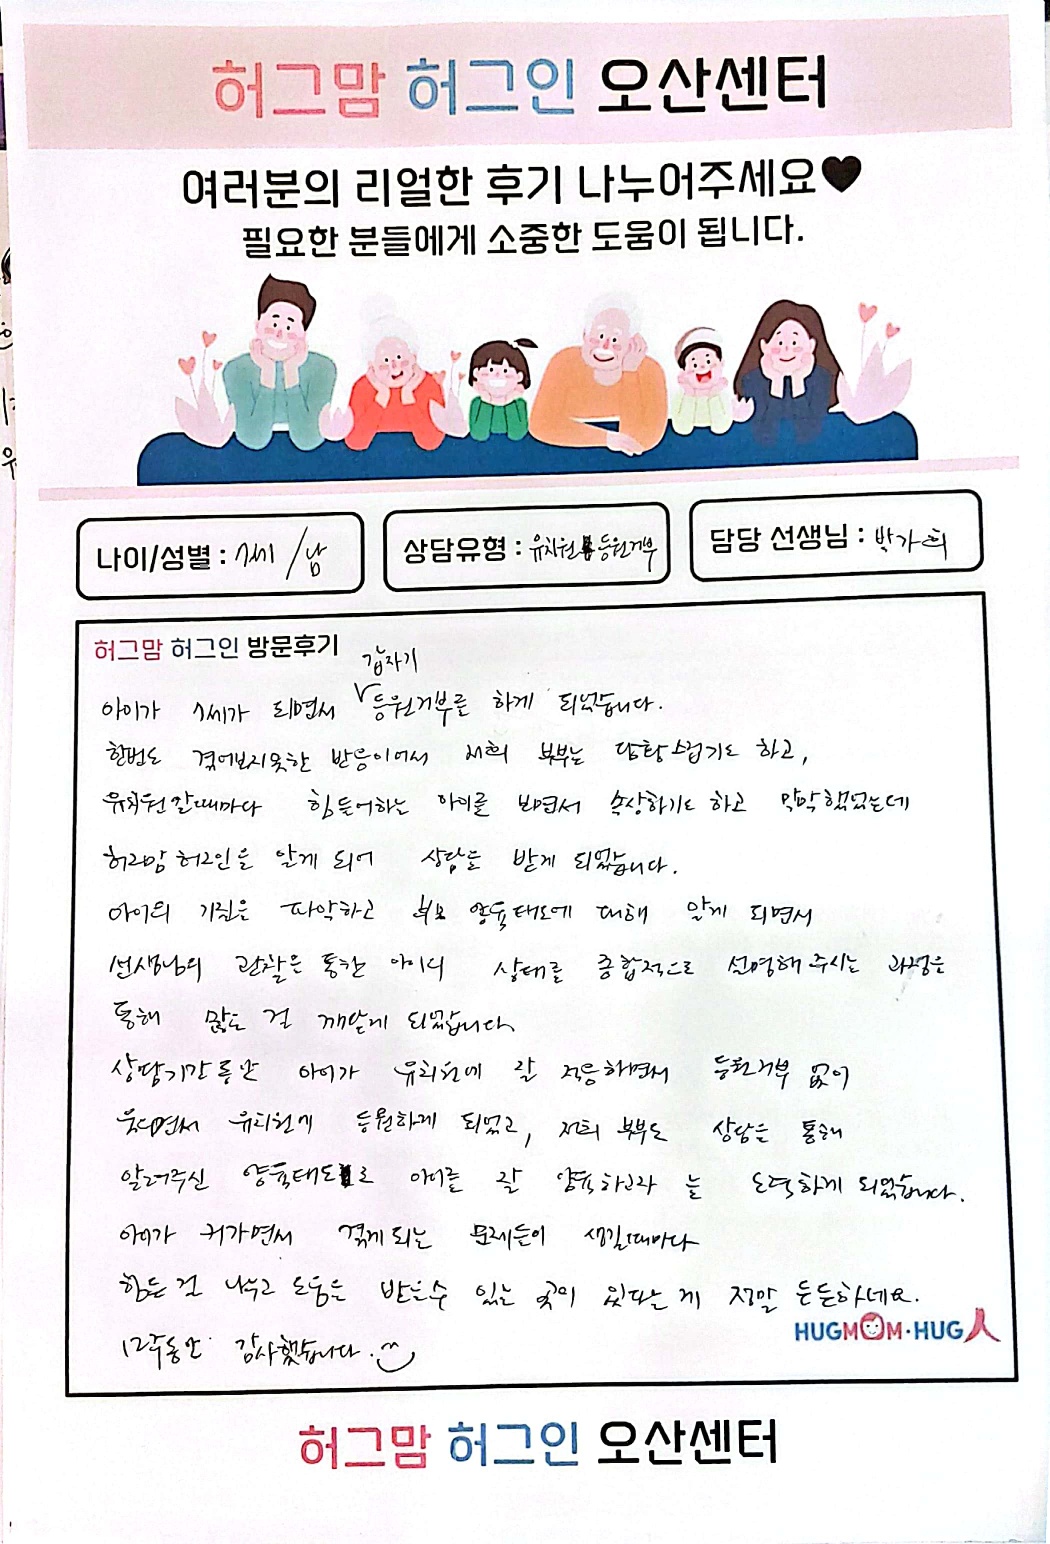 허그맘 허그인 오산센터
여러분의 리얼한 후기 나누어주세요♥
필요한 분들에게 소중한 도움이 됩니다.
나이/성별 : 7세 / 남
상담유형 : 유치원 등원거부
담당 선생님 : 박가희
허그맘 허그인 방문후기
갑자기
아이가 7세가 되면서 등원거부를 하게 되었습니다.
한번도 겪어보지못한 반응이어서 저희 부부는 당황스럽기도 하고,
유치원갈때마다 힘들어하는 아이를 보면서 속상하기도 하고 막막했었는데
허그맘 허그인을 알게 되어 상담을 받게 되었습니다.
아이의 기질을 파악하고 부모 양육태도에 대해 알게 되면서
선생님의 관찰을 통한 아이의 상태를 종합적으로 설명해주시는 과정을
통해 많은 걸 깨닫게 되었습니다.
상담기간동안 아이가 유치원에 잘 적응하면서 등원거부 없이
웃으면서 유치원에 등원하게 되었고, 저희 부부도 상담을 통해
알려주신 양육태도로 아이를 잘 양육하고자 늘 노력하게 되었습니다.
아이가 커가면서 겪게되는 문제들이 생길때마다
힘든걸 나누고 도움을 받을수 있는 곳이 있다는게 정말 든든하네요.
12주동안 감사했습니다.
HUGMOM·HUG人
허그맘 허그인 오산센터